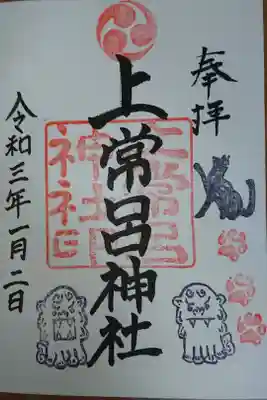 奉拝
上常呂神社
令和三年一月二日